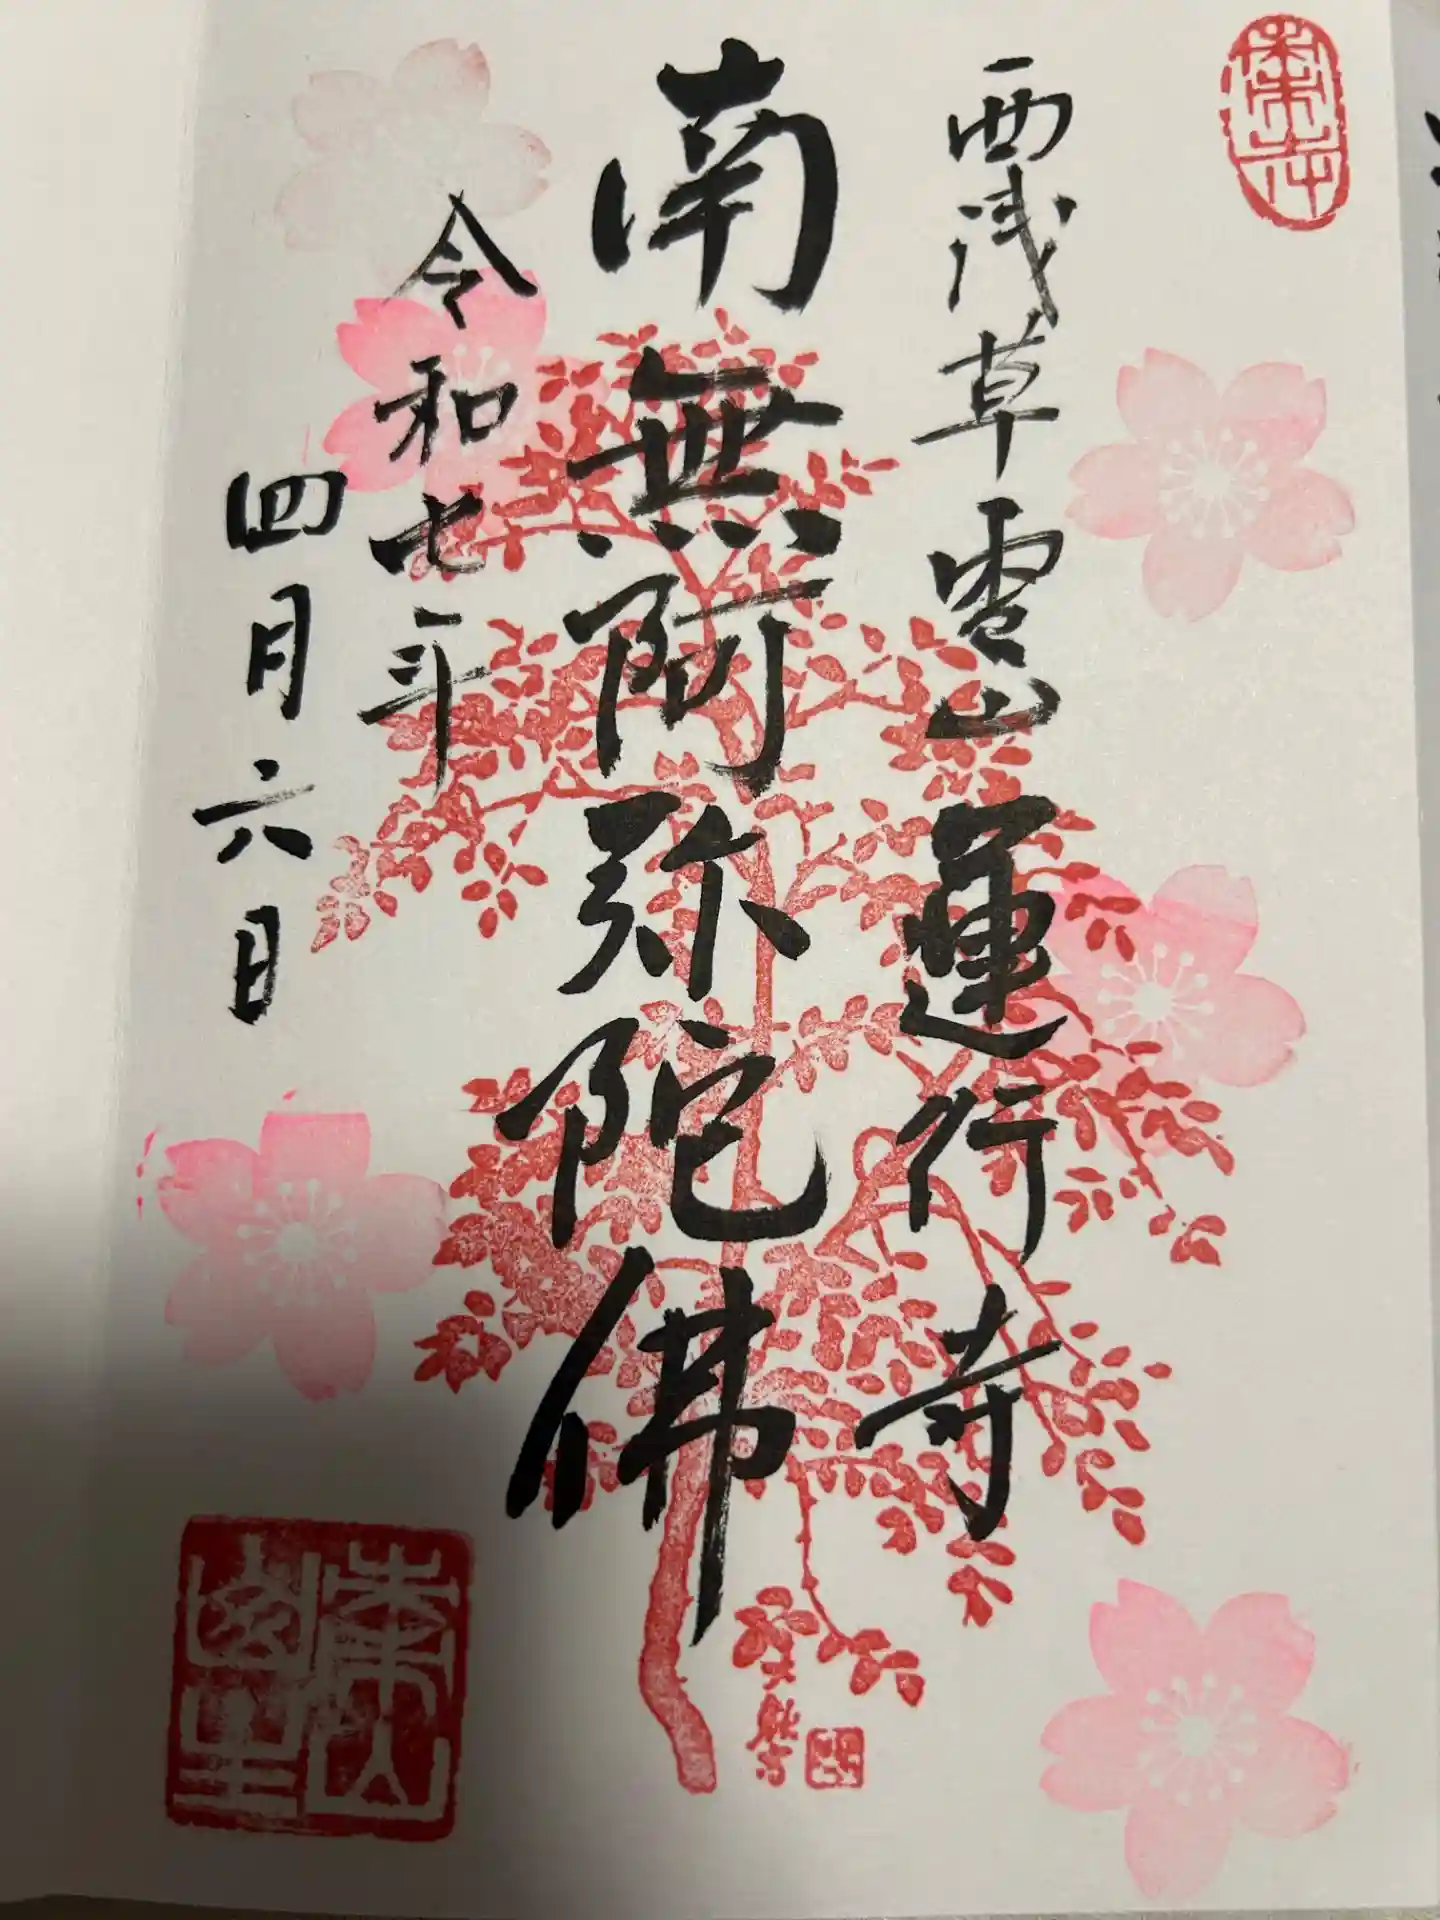 西浅草雲山運行寺
南無阿弥陀佛
令和七年
四月六日